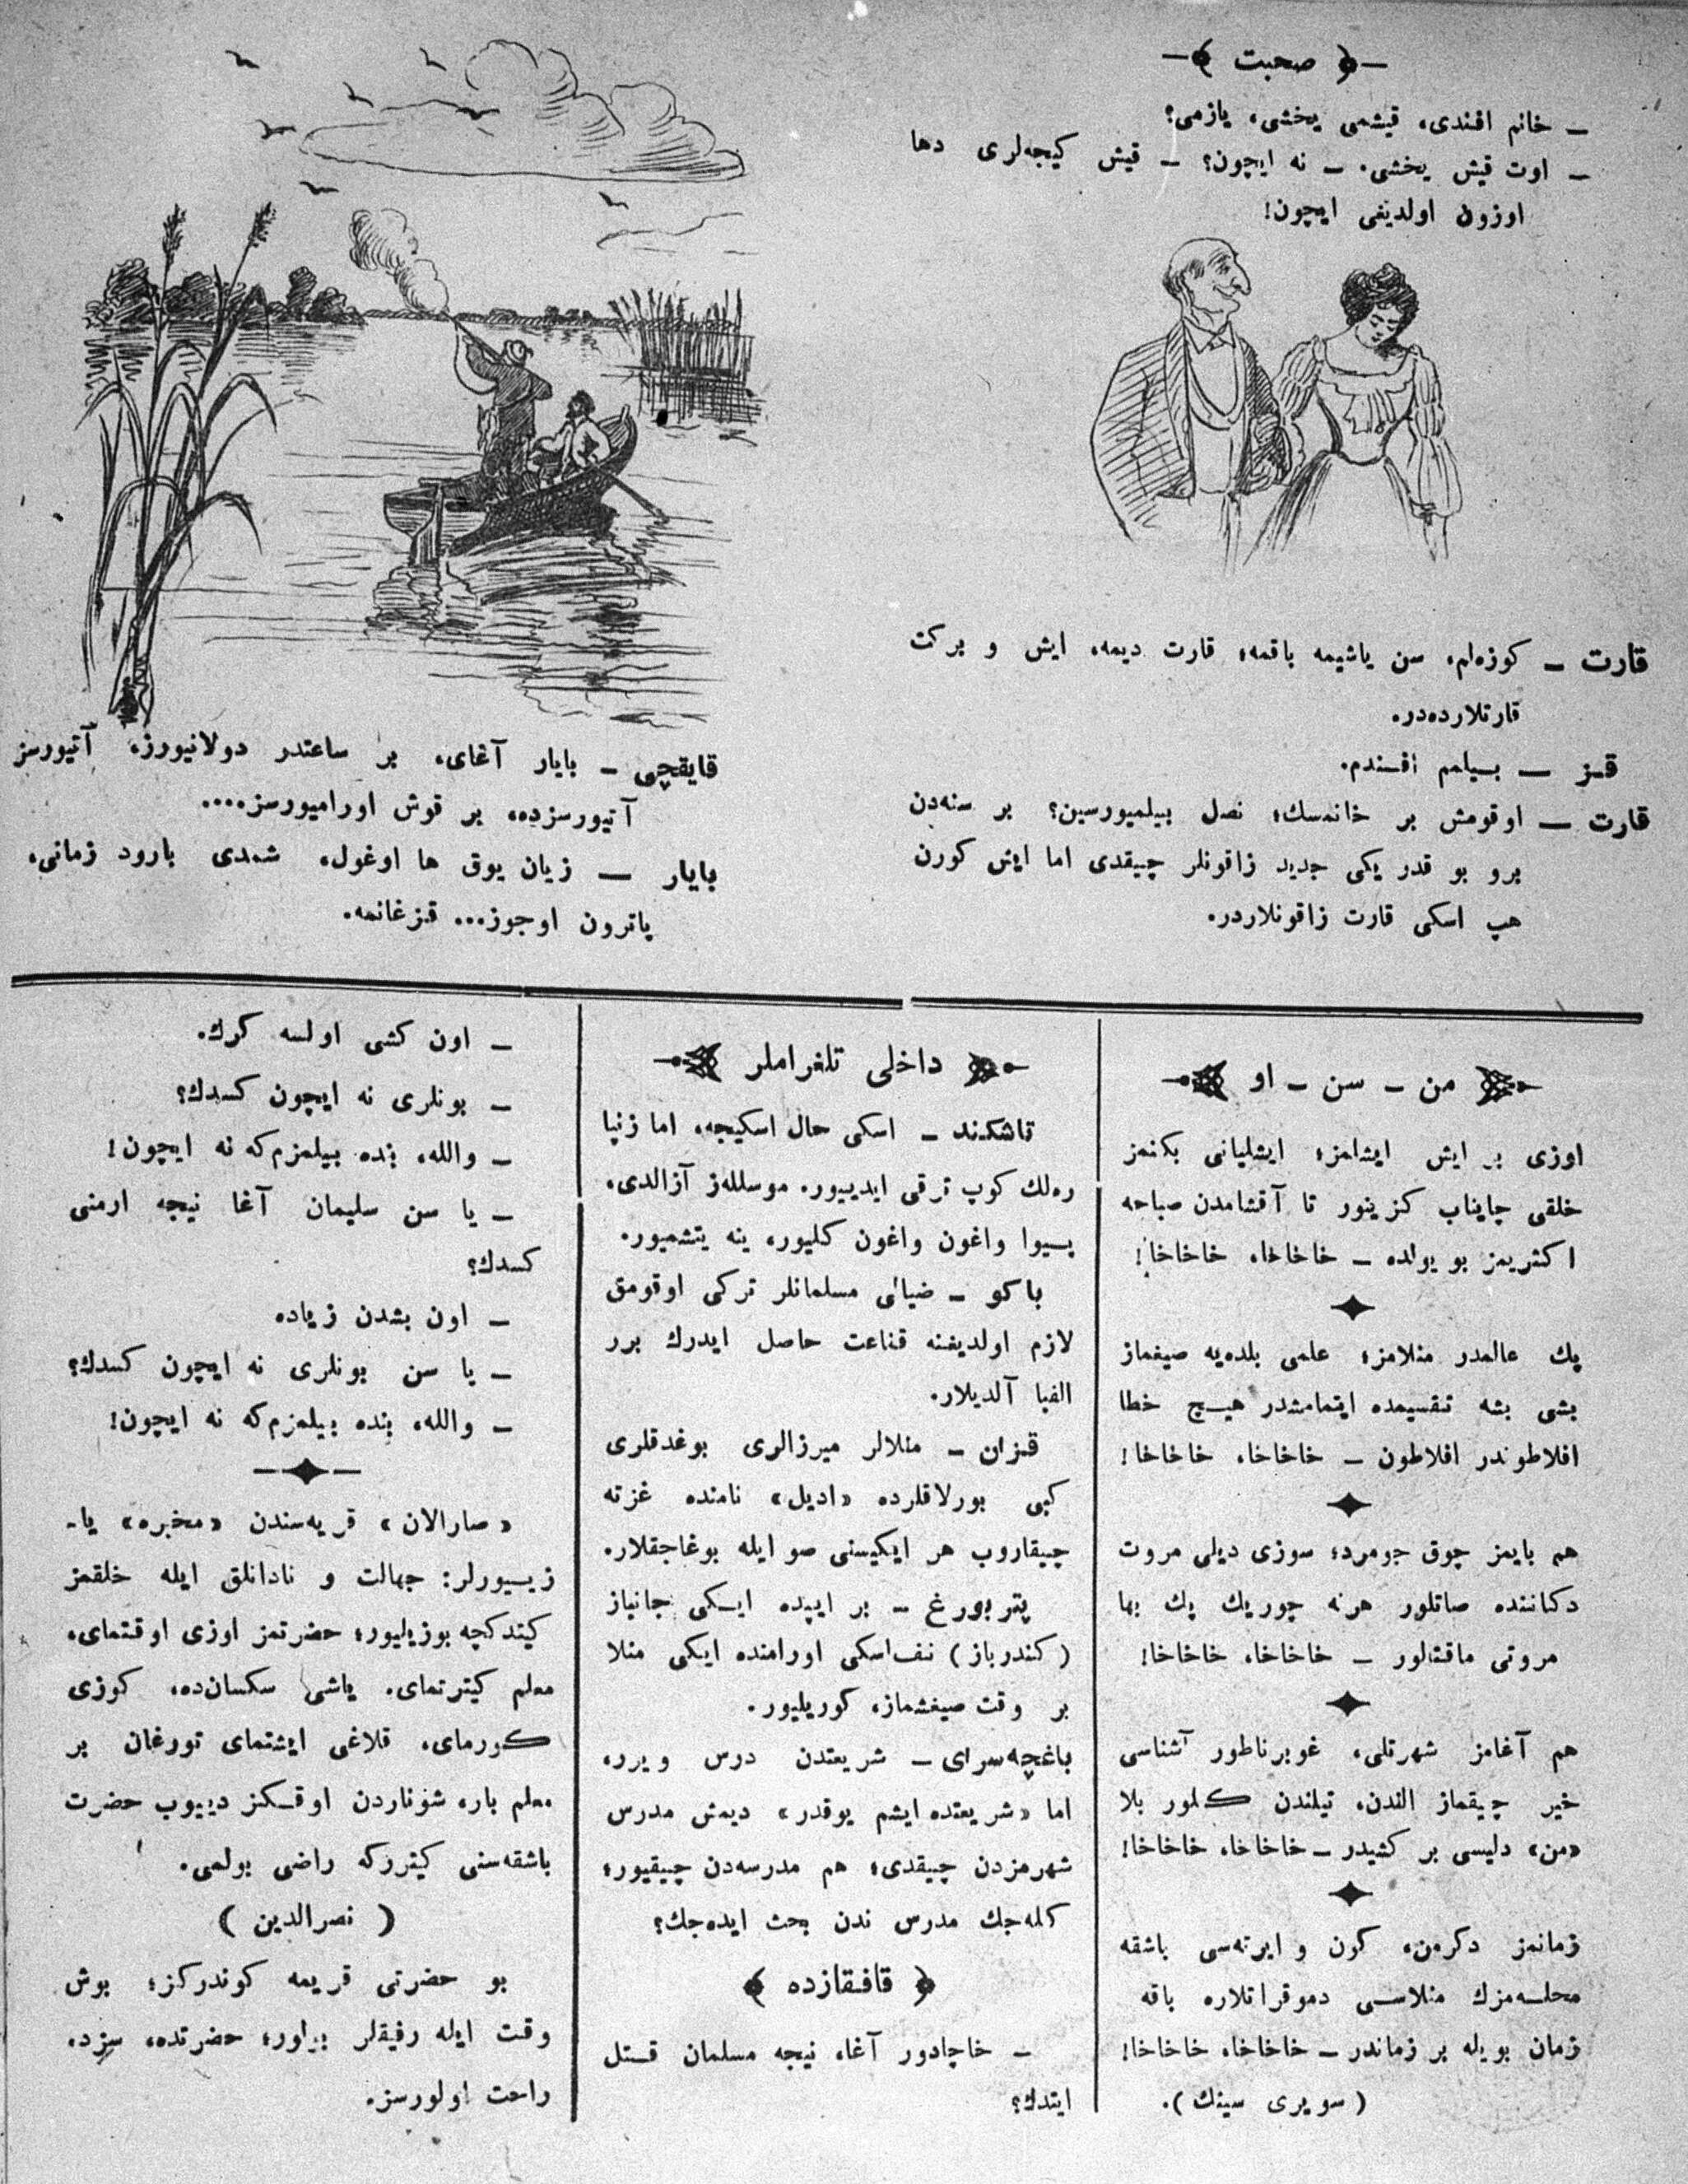 صحبت
— خانم افندی، قیشمی یخشی، یازمی؟
— اوت قیش یخشی. — نه ایچون؟ — قیش کیجه‌لری دها
اوزون اولدیغی ایچون!
قارت — کوزه‌لم، سن یاشیمه باقمه؛ قارت دیمه، ایش و برکت
قارتلارده‌در.
قـز — بـیلمم افـندم.
قارت — اوقومش بر خانمسك؛ نصل بیلمیورسین؟ بر سنه‌دن
برو بو قدر یکی جدید زاقونلر چیقدی اما ایش کورن
هپ اسکی قارت زاقونلاردر.
قایقچی — بایار آغای، بر ساعتدر دولانیورز، آتیورسز
آتیورسزده، بر قوش اورامیورسز....
بایار — زیان یوق ها اوغول، شمدی بارود زمانی،
پاترون اوجوز... قزغانمه.
من – سن – او
اوزی بر ایش ایشلمز؛ ایشلیانی بکنمز
خلقی چایناب کزینور تا آقشامدن صباحه
اکثریمز بو یولده — خاخاخا، خاخاخا!
پك عالمدر منلامز؛ علمی بلده‌یه صیغماز
بشی بشه تقسیمده ایتمامشدر هیـچ خطا
افلاطوندر افلاطون — خاخاخا، خاخاخا!
هم بایمز چوق جومرد؛ سوزی دیلی مروت
دکاننده صاتلور هرنه چوریك پك بها
مروتی ماقتالور — خاخاخا، خاخاخا!
هم آغامز شهرتلی، غوبرناطور آشناسی
خیر چیقماز الندن، تیلندن کـلور بلا
«من» دلیسی بر کشیدر — خاخاخا، خاخاخا!
زمانمز دکرمن، کون و ایرته‌سی باشقه
محلـه‌مزك منلاسـی دموقراتلاره باقه
زمان بویله بر زماندر — خاخاخا، خاخاخا!
(سویری سینك).
داخلی تلغراملر
تاشکند — اسکی حال اسکیجه، اما زنپا
ره‌لك کوپ ترقی ایدیـیور. موسللـه‌ز آزالدی،
پـیوا واغون واغون کلیور، ینه یتشمیور.
باکو — ضیالی مسلمانلر ترکی اوقومق
لازم اولدیغنه قناعت حاصل ایدرك برر
الفبا آلدیلار.
قـزان — منلالر میرزالری بوغدقلری
کبی بورلاقلرده «ادیل» نامنده غزته
چیقاروب هر ایکیسنی صو ایله بوغاجقلار.
پتربورغ — بر ایپده ایـکی جانباز
(کندرباز) نفـ‌اسکی اورامنده ایکی منلا
بر وقت صیغشماز، کوریلیور.
باغچه‌سرای — شریعتدن درس ویرر،
اما «شریعتده ایشم یوقدر» دیمش مدرس
شهرمزدن چیقدی؛ هم مدرسه‌دن چیقیور؛
کله‌جك مدرس ندن بحث ایده‌جك؟
قافقازده
— خاچادور آغا، نیجه مسلمان قـتل
ایتدك؟
— اون کشی اولسه کرك.
— بونلری نه ایچون کسدك؟
— والله، بنده بیلمزم‌که نه ایچون!
— یا سن سلیمان آغا نیجه ارمنی
کسدك؟
— اون بشدن زیاده
— یا سن بونلری نه ایچون کسدك؟
— والله، بنده بیلمزم‌که نه ایچون!
«صارالان» قریه‌سندن «مخبره» یا-
زیـیورلر: جهالت و نادانلق ایله خلقمز
کیتدکچه بوزیلیور؛ حضرتمز اوزی اوقتمای،
معلم کیترتمای. یاشی سکسان‌ده، کوزی
کـورمای، قلاغی ایشتمای تورغان بر
معلم بار، شوناردن اوقـکز دیـیوب حضرت
باشقه‌سنی کیتررکه راضی بولمی.
(نصرالدین)
بو حضرتی قریمه کوندرکز؛ بوش
وقت ایله رفیقلر براور؛ حضرتده، سزده
راحت اولورسز.